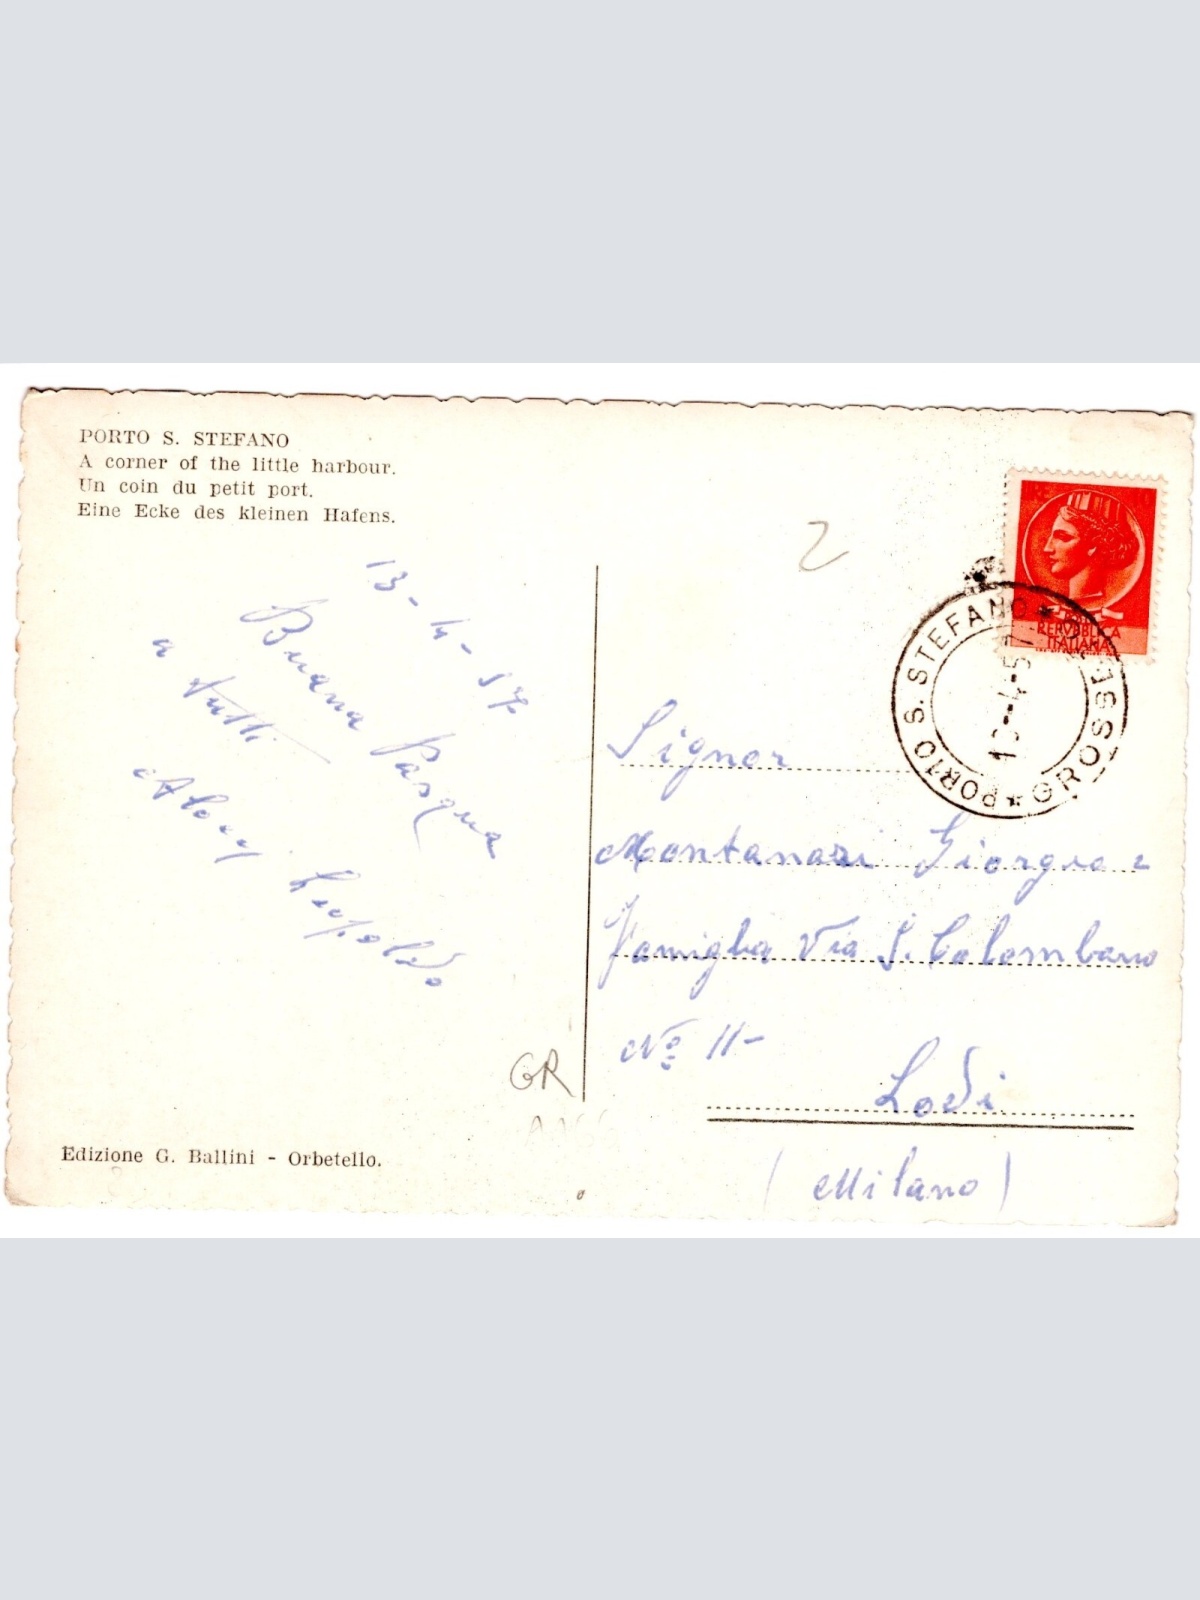 PORTO S. STEFANO
A corner of the little harbour.
Un coin du petit port.
Eine Ecke des kleinen Hafens.
13-4-57
Buona Pasqua
a tutti
Leopoldo
2
REPVBBLICA
ITALIANA
PORTO S. STEFANO * GROSSETO *
-4-57
Signor
Montanari Giorgio e
Famiglia Via S. Colombano
Nº 11-
Lodi
(Milano)
GR
Edizione G. Ballini - Orbetello.